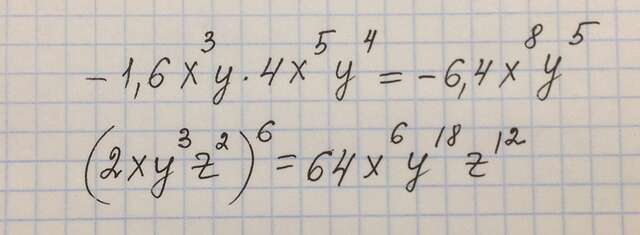 - 1,6x³y · 4x⁵y⁴ = - 6,4x⁸y⁵
(2xy³z²)⁶ = 64x⁶y¹⁸z¹²